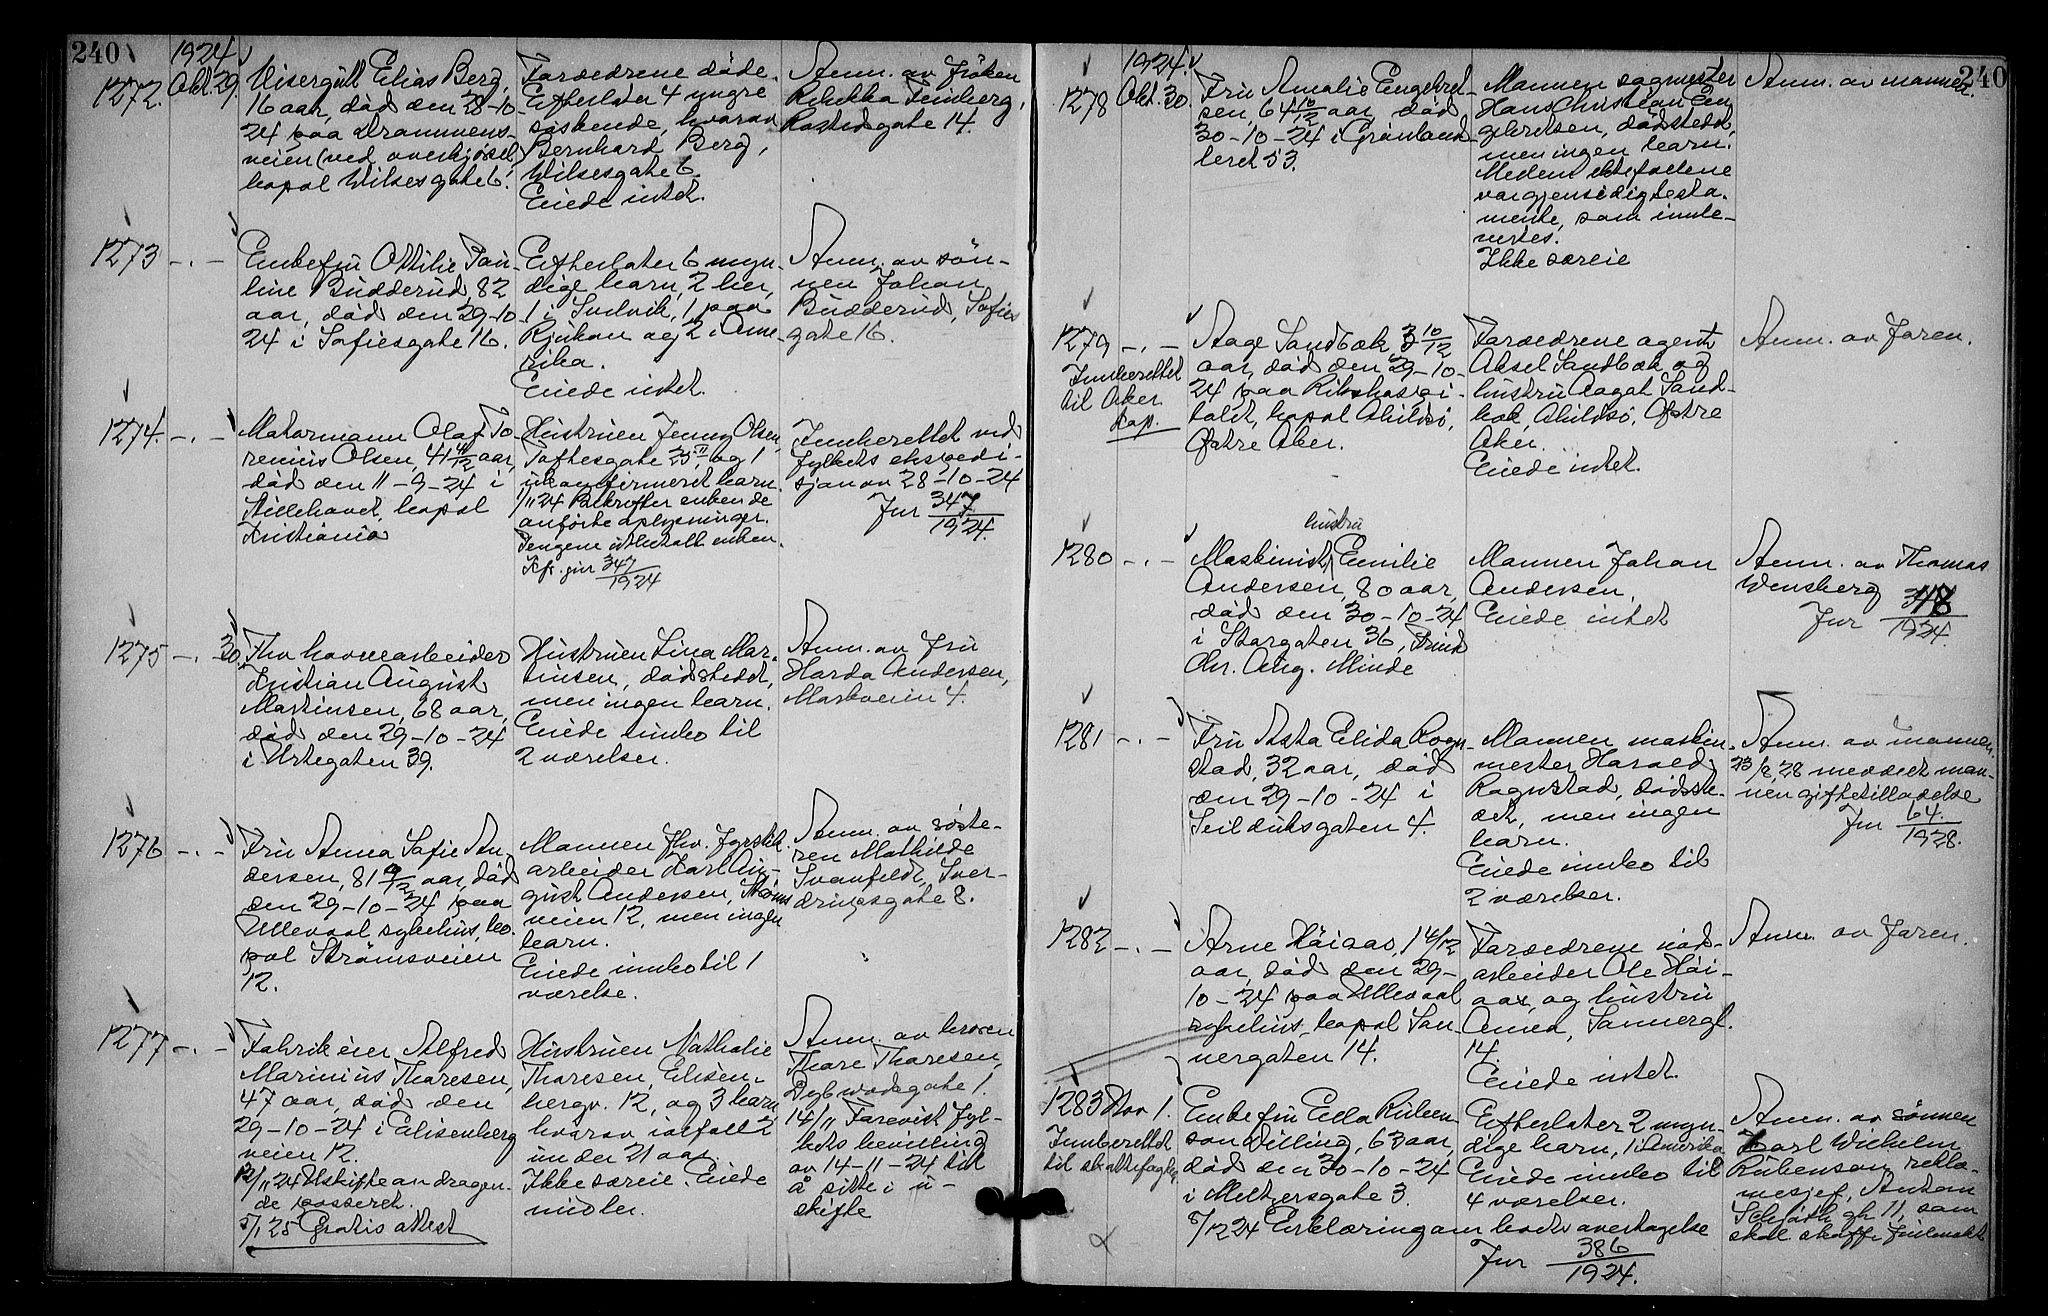 240
1924
1272. Okt. 29.
Visergutt Elias Berg,
16 aar, død den 28-10-
24 paa Drammens-
veien (ved overkjørsel)
bopal Wilsesgate 6.
Forældrene døde.
Efterlater 4 yngre
søskende, hvorav
Bernhard Berg,
Wilsesgate 6.
Eiede intet.
Anm. av frøken
Rebekka Feinberg,
Rostedsgate 14.
1273 -.-
Enkefru Ottilie Pau-
line Budderud, 82
aar, død den 29-10-
24 i Sofiesgate 16.
Efterlater 6 myn-
dige barn, 2 her,
1 i Svelvik, 1 paa
Rjukan og 2 i Ame-
rika.
Eiede intet.
Anm. av søn-
nen Johan
Budderud, Sofies
gate 16.
1274. -.-
Motormann Olaf To-
renius Olsen, 41 11/12 aar,
død den 11-9-24 i
Stillehavet, bopal
Kristiania
Hustruen Jenny Olsen,
Toftesgate 25 II, og 1
ukonfirmeret barn.
1/11 24 Bekrefter enken de
anførte oplysninger.
Pengene utbetalt enken.
Kfr. jur 347/1924
Innberettet ved
fylkets ekspedi-
sjon av 28-10-24
Jur 347/1924.
1275 -.- 30.
Fhv havnearbeider
Kristian August
Martinsen, 68 aar,
død den 29-10-24
i Urtegaten 39.
Hustruen Lina Mar-
tinsen, dødstedet,
men ingen barn.
Eiede innbo til
2 værelser.
Anm. av fru
Harda Andersen,
Markveien 4.
1276 -.-
Fru Anna Sofie An-
dersen, 81 9/12 aar, død
den 29-10-24 paa
Ullevaal sykehus, bo-
pal Strømsveien
12.
Mannen fhv. fyrstikk
arbeider Karl Au-
gust Andersen, Strøms
veien 12, men ingen
barn.
Eiede innbo til 1
værelse.
Anm. av søste-
ren Mathilde
Svanfeldt, Sver-
drupsgate 8.
1277 -.-
Fabrikeier Alfred
Marinius Thoresen,
47 aar, død den
29-10-24 i Elisenberg
veien 12.
12/11 24 Uskifteandragen-
de passeret.
5/1 25 Gratis attest
Hustruen Nathalie
Thoresen, Elisen-
bergv. 12, og 3 barn
hvorav iafall 2
under 21 aar.
Ikke særeie. Eiede
midler.
Anm. av broren
Thore Thoresen,
Dybwadsgate 1.
14/11 Forevist fyl-
kets bevilling
av 14-11-24 til
å sitte i u-
skifte
240
1924.
1278 Okt. 30.
Fru Amalie Engebret-
sen, 64 10/12 aar, død
30-10-24 i Grønland
leret 53.
Mannen sagmester
Hans Christian En-
gebretsen, dødstedet,
men ingen barn.
Mellem ektefællene
var gjensidig testa-
mente, som innle-
vertes.
Ikke særeie
Anm. av mannen.
1279 -.-
Innberettet
til Aker
kap.
Aage Sandbæk 3 10/12
aar, død den 29-10-
24 paa Rikshospi-
talet, bopal Abildsø,
Østre Aker.
Forældrene agent
Aksel Sandbæk og
hustru Aagot Sand-
bæk, Abildsø, Østre
Aker.
Eiede intet.
Anm. av faren.
1280 -.-
hustru
Maskinist Emilie
Andersen, 80 aar,
død den 30-10-24
i Storgaten 36,
Chr. Aug. Minde
Mannen Johan
Andersen.
Eiede intet
Anm. av Thomas
Wensberg
Jur 348/1924.
1281 -.-
Fru Asta Elida Rogn-
stad, 32 aar, død
den 29-10-24 i
Seilduksgaten 4.
Mannen maskin-
mester Harald
Rognstad, dødste-
det, men ingen
barn.
Eiede innbo til
2 værelser.
Anm. av mannen.
23/2 28 meddelt man-
nen giftetilladelse
Jur 64/1928.
1282 -.-
Arne Høiaas, 1 4/12
aar, død den 29-
10-24 paa Ullevaal
sykehus, bopal San-
nergaten 14.
Forældrene
arbeider Ole Høi-
aas, og hustru
Anna, Sannergt.
14.
Eiede intet.
Anm. av faren.
1283 Nov 1.
Innberettet
til skattefogden
Enkefru Ella Ruben-
son Willing, 63 aar,
død den 30-10-24
i Meltzersgate 3.
5/12 24 Erklæring om boets overtagelse
Jur 386/1924.
Efterlater 2 myn-
dige barn, 1 i Amerika
Eiede innbo til
4 værelser.
Anm. av sønnen
Karl Wilhelm
Rubenson, rekla-
mesjef, Anton
Schjøths gt 11, som
skal skaffe fuldmakt